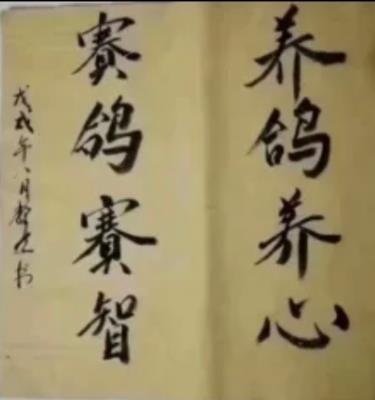 养鸽养心
賽鸽賽智
戊戌年八月
书